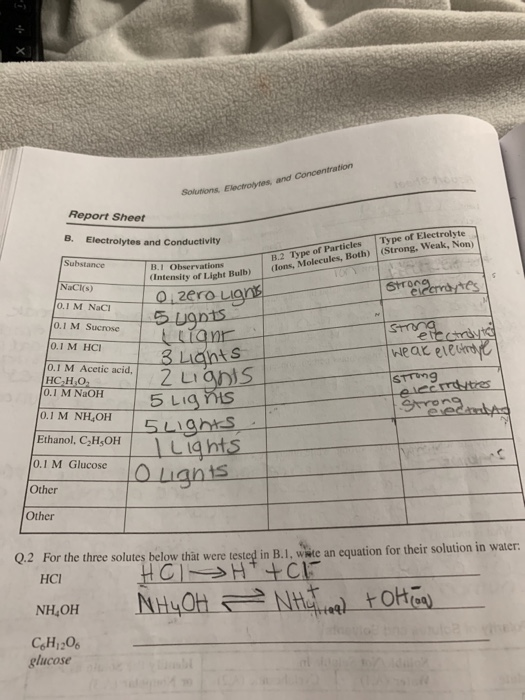 Solutions, Electrolytes, and Concentration
Report Sheet
B. Electrolytes and Conductivity
Substance B.1 Observations (Intensity of Light Bulb) B.2 Type of Particles (Ions, Molecules, Both) Type of Electrolyte (Strong, Weak, Non)
NaCl(s) 0, zero Lights Strong electrolytes
0.1 M NaCl 5 Lights
0.1 M Sucrose 1 Light Strong electrolyte
0.1 M HCl 3 Lights weak electrolyte
0.1 M Acetic acid, HC₂H₃O₂ 2 Lights Strong electrolytes
0.1 M NaOH 5 Lights Strong
0.1 M NH₄OH 5 Lights
Ethanol, C₂H₅OH 1 Lights
0.1 M Glucose 0 Lights
Other
Other
Q.2 For the three solutes below that were tested in B.1, write an equation for their solution in water:
HCl HCl → H⁺ + Cl⁻
NH₄OH NH4OH ⇌ NH4⁺(aq) + OH⁻(aq)
C₆H₁₂O₆
glucose